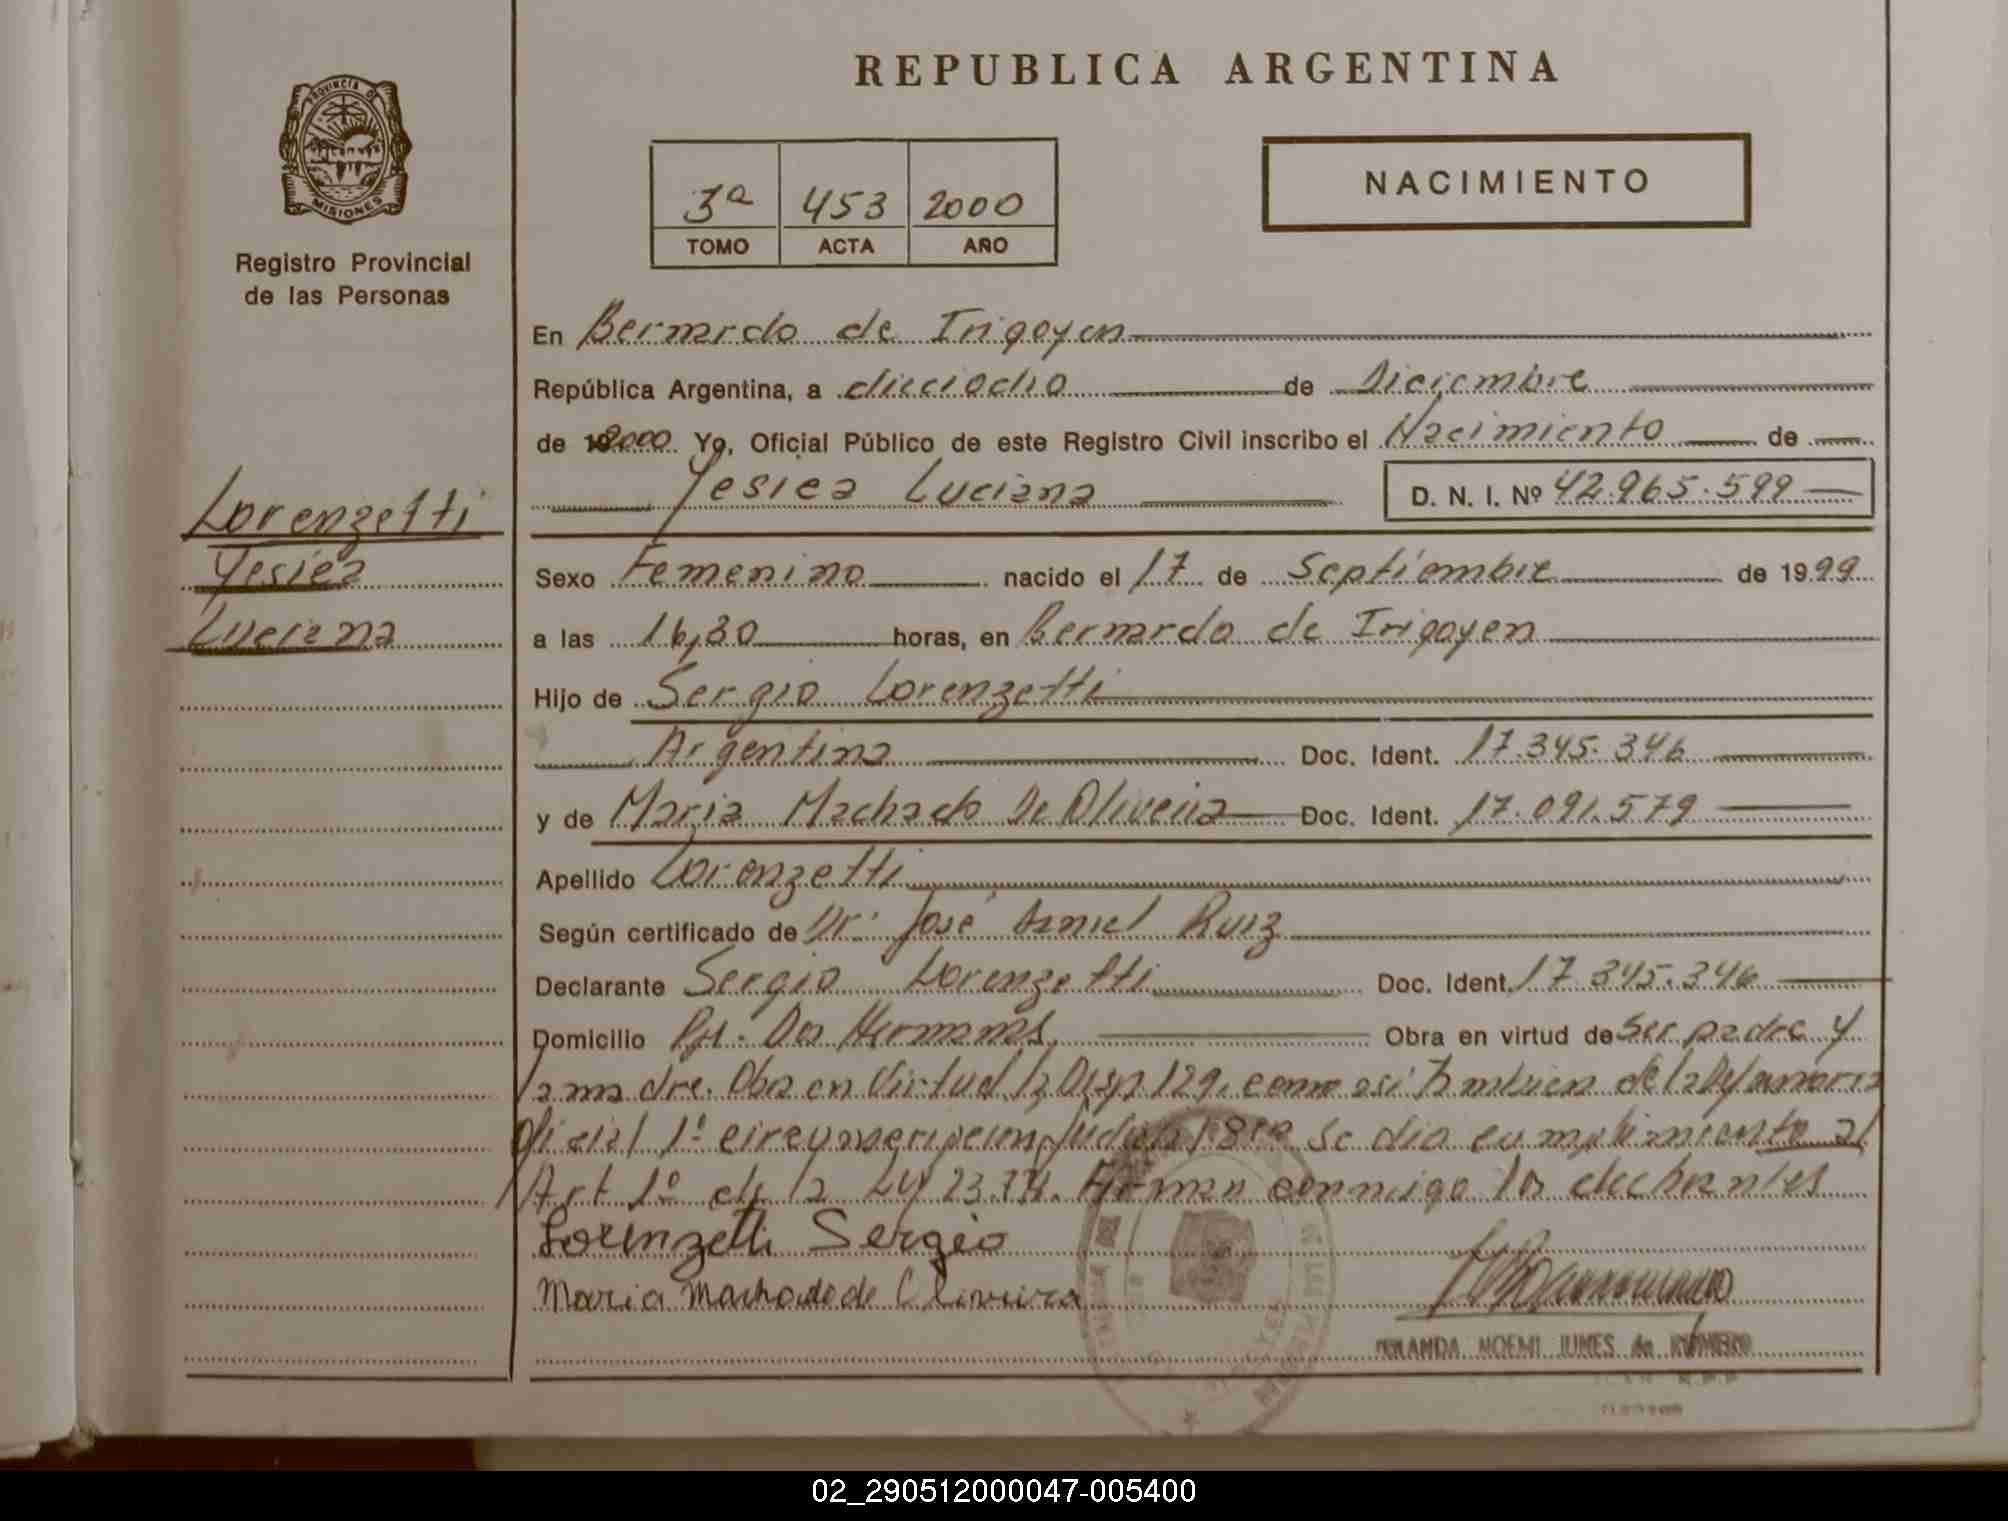 REPUBLICA ARGENTINA
PROVINCIA DE
MISIONES
Registro Provincial
de las Personas
3ª 453 2000
TOMO ACTA AÑO
NACIMIENTO
En Bernardo de Irigoyen
República Argentina, a dieciocho de Diciembre
de 192000 Yo, Oficial Público de este Registro Civil inscribo el Nacimiento de
Yesica Luciana D. N. I. Nº 42.965.599
Lorenzetti
Yesica
Luciana
Sexo Femenino nacido el 17 de Septiembre de 1999
a las 16,30 horas, en Bernardo de Irigoyen
Hijo de Sergio Lorenzetti
Argentina Doc. Ident. 17.345.346
y de Maria Machado De Oliveira Doc. Ident. 17.091.579
Apellido Lorenzetti
Según certificado de Dr. José Ruiz
Declarante Sergio Lorenzetti Doc. Ident. 17.345.346
Domicilio Dos Hermanas Obra en virtud de Ser padre y
la madre. Obra en Virtud la Disp. 129, como asi Tambien de la
Oficial 1º circunscripcion Judicial se dio cumplimiento al
Art 1º de la Ley 23.774. Firman conmigo los declarantes
Lorenzetti Sergio
Maria Machado de Oliveira
NOEMI de
02_290512000047-005400